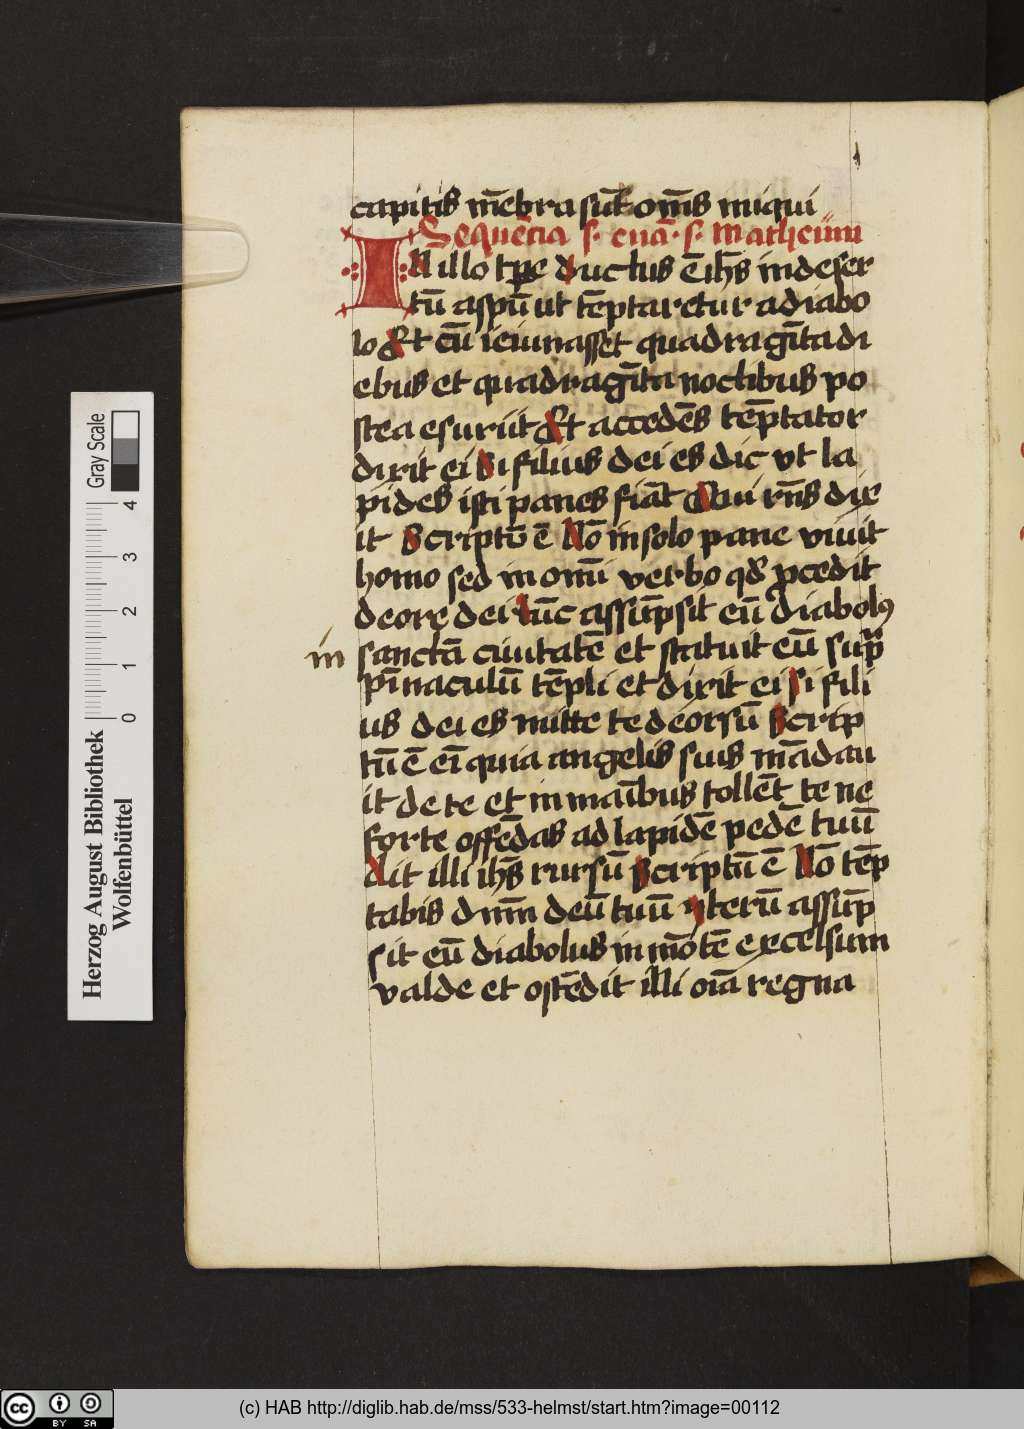 capitis m̄ebra sūt om̄s iniqui
Sequēcia s. euā. s. Matheum
IN illo tp̄e ductus ē ih̄s in deser
tū a spū ut tēptaretur a diabo
lo Et cū ieiunasset quadragīta di
ebus et quadragīta noctibus po
stea esuriit Et accedēs tēptator
dixit ei Si filius dei es dic vt la
pides isti panes fiāt Qui rn̄s dix
it Scriptū ē Nō in solo pane viuit
homo sed in omī verbo qd̄ p̄cedit
de ore dei Tūc assūpsit eū diabolꝰ
in sanctā ciuitatē et statuit eū sup̄
pīnaculū tēpli et dixit ei Si fili
us dei es mitte te deorsū Scrip
tū ē eī quia angelis suis mādau
it de te et in maībus tollēt te ne
forte offēdas ad lapidē pedē tuū
Ait illi ih̄s rursū Scriptū ē Nō tēp
tabis dnm̄ deū tuū Iterū assūp
sit eū diabolus in mōtē excelsum
valde et ostēdit illi oīa regna
Herzog August Bibliothek
Wolfenbüttel
Gray Scale
0 1 2 3 4
cc BY SA
(c) HAB http://diglib.hab.de/mss/533-helmst/start.htm?image=00112